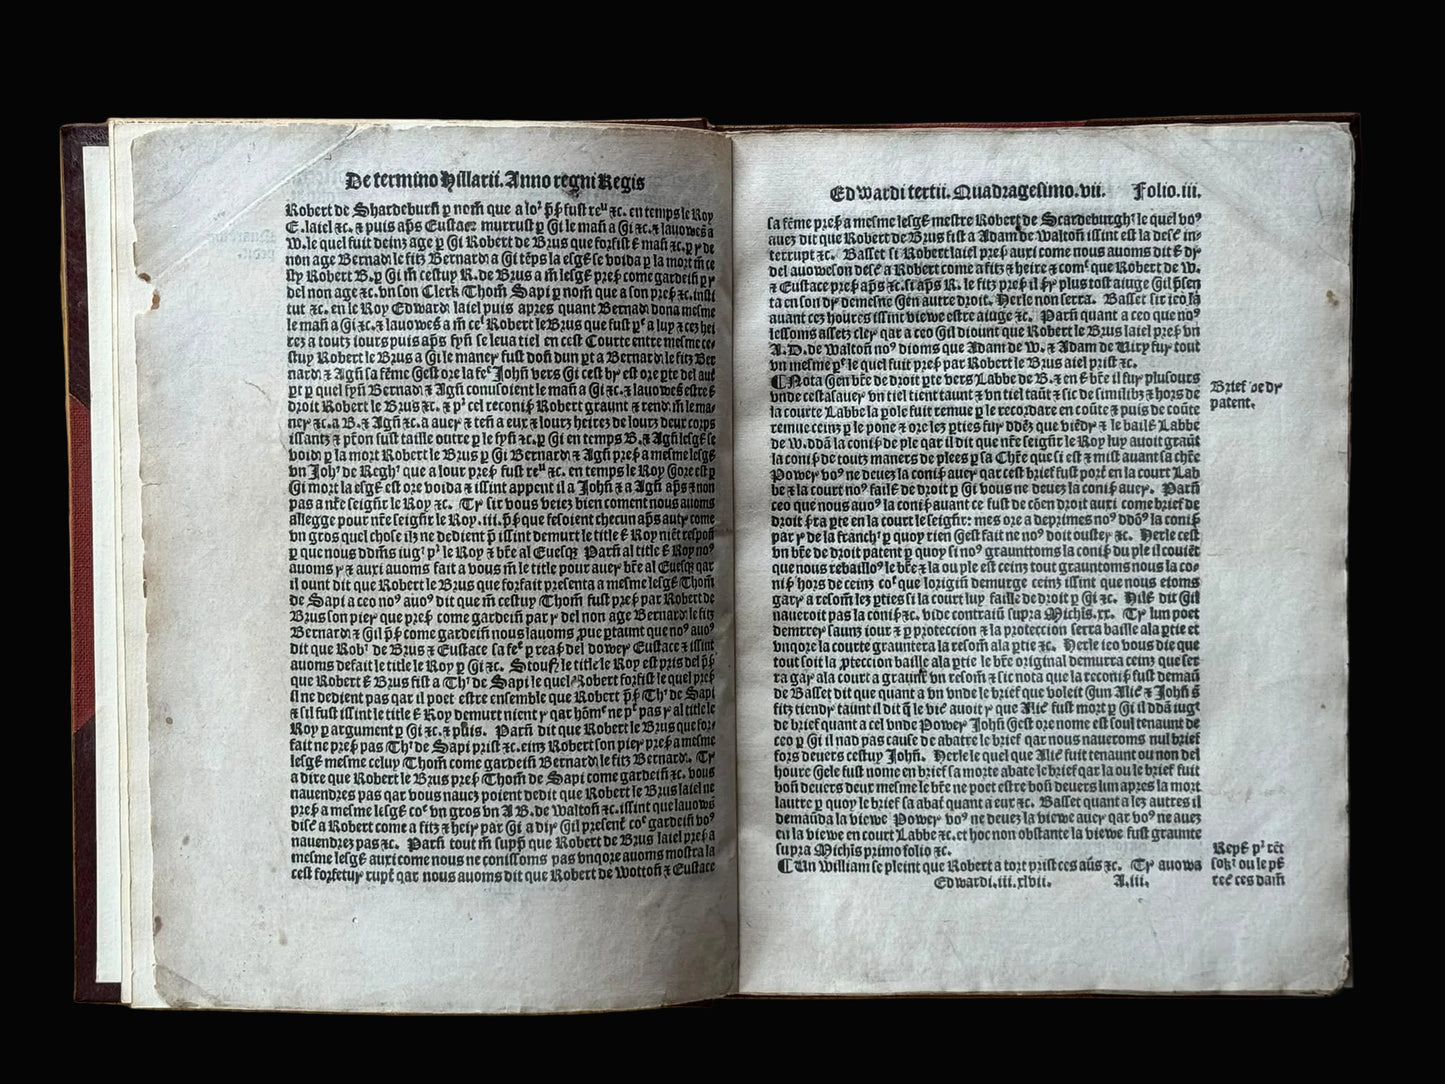 De termino Hillarii. Anno regni Regis
Robert de Shardeburh p nom que a lo² p̄s̄ fust reu &c. en temps le Roy
E. laiel &c. & puis ap̄s Eustace murrust p Gi le mañ a Gi &c. & lauowes a
W. le quel fuit deinz age p Gi Robert de Brus que forfist &
non age Bernard le fitz Bernard a Gi tēps la esgƚ se voida p la mort m̄ ce
sty Robert B. p Gi m̄ cestuy R. de Brus a m̄ lesgƚ pres̄ come gardeiñ p
del non age &c. vn son Clerk Thom̄ Sapi p nom̄ que a son pres̄ &c. insti
tut &c. en le Roy Edward laiel puis apres quant Bernard dona mesme
le mañ a Gi &c. & lauowes̄ a m̄ Robert le Brus que fust a luy & cez hei
rez a toutz iours puis ap̄s fyñ se leua tiel en cest Courte entre mesme ce-
stuy Robert le Brus a Gi le maner fust doñ dun pt a Bernard le fitz Ber
nard & Agñ sa fēme Gest ore la Johñ vers Gi cest br̄ est ore pte del aut̄
pt p quel fyñ Bernard & Agñ conusoient le mañ a Gi &c. & lauowes̄
droit Robert le Brus &c. & p² cel reconis̄ Robert graunt & rend m̄ le ma-
ner &c. a B. & Agñ &c. a auer & teñ a eux & lourz heirez de lourz deux corps
issantz & p̄ron fust taille outre p le fyñ &c. p Gi en temps B. & Agñ lesgƚ se
voida p la mort Robert le Brus p Gi Bernard & Agñ pres̄ a mesme lesgƚ
vn Joh² de Regh² que a lour pres̄ fust reu &c. en temps le Roy Gore est p
Gi mort la esgƚ est ore voida & issint appent il a Johñ & a Agñ ap̄s & non
pas a nr̄e seigñr le Roy &c. Tr̄ sir vous veiez bien coment nous auoms
allegge pour nr̄e seigñr le Roy. iii. p̄s̄ que fesoient checun ap̄s autr̄ come
vn gros quel chose ilz ne dedient p̄ issint demurt le title & Roy niēt respoñ
p que nous dd̄ms iug² p² le Roy & br̄e al Euesq̄ Parñ al title & Roy no⁹
auoms & auxi auoms fait a vous m̄ le title pour auer br̄e al Euesq̄ qar
il ount dit que Robert le Brus que forfait presenta a mesme lesgƚ Thom̄
de Sapi a ceo no⁹ auo⁹ dit que m̄ cestuy Thom̄ fust pres̄ par Robert de
Brus son pier que pres̄ come gardeiñ par del non age Bernard le fitz
Bernard & Gil p̄s̄ come gardeiñ nous lauoms ꝓue ptaunt que no⁹ auo⁹
dit que Rob² de Brus & Eustace sa fe² p reas̄ del dower Eustace & issint
auoms defait le title le Roy p Gi &c. Stouf le title le Roy est pris del p̄s̄
que Robert & Brus fist a Th² de Sapi le quel Robert forfist le quel pres̄
il ne dedient pas qar il poet estre ensemble que Robert p̄s̄ Th² de Sapi
& sil fust issint le title & Roy demurt nient qar hōm̄ ne p² pas al title le
Roy p argument p Gi &c. & p̄uis. Parñ dit que Robert le Brus que for-
fait ne pres̄ pas Th² de Sapi prist &c. einz Robert son pier pres̄ a mesme
lesgƚ mesme celuy Thom come gardeiñ Bernard le fitz Bernard. Tr̄
a dire que Robert le Brus pres̄ Thom̄ de Sapi come gardeiñ &c. vous
nauendres pas qar vous nauez poient dedit que Robert le Brus laiel ne
pres̄ a mesme lesgƚ vn gros vn A B. de Waltoñ &c. issint que lauowes̄
disc̄ a Robert come a fitz & heir par Gi a dir Gil presenƚ gardeiñ vo⁹
nauendrez pas &c. Parñ tout m̄ supp̄ que Robert de Brus laiel pres̄ a
mesme lesgƚ auxi come nous ne conissoms pas vnqore auoms mostra la
cest forfetur rupt̄ qar nous auoms dit que Robert de Wottoñ & Eustace
Edwardi tertii. Quadragesimo. vii. Folio. iii.
sa fēme pres̄ a mesme lesgƚ mestre Robert de Scardeburgh² le quel vo⁹
auez dit que Robert de Brus fist a Adam de Waltoñ issint est la desc̄ in-
terrupt &c. Basset si Robert laiel pres̄ auxi come nous auoms dit &
del auoweson desc̄ a Robert come a fitz & heire & com² que Robert de W.
& Eustace pres̄ ap̄s &c. si ap̄s R. le fitz pres̄ il plus tost aiuge Gil p̄sen
ta en son dr̄ demesne Gen autre droit. Herle non serra. Basset sir
auant cez houres issint viewe estre aiuge &c. Parñ quant a ceo que no⁹
lessoms assetz cler qar a ceo Gil diount que Robert le Brus laiel pres̄ vn
A. D. de Waltoñ no⁹ dioms que Adam de W. & Adam de Vicy fur tout
vn mesme le quel fuit pres̄ par Robert le Brus aiel prist &c.
¶ Nota Gen br̄e de droit pte vers Labbe de B. & en & br̄e il fur plusours
vnde cestasauer vn tiel tient taunt & vn tiel taūt & sic de similibz & hors de
la courte Labbe la pole fuit remue p le recordare en coūte & puis de coūte
remue ceinz p le pone & ore lez pties fur ddēz que & le bailƚ Labbe
de W. ddā la conis̄ de ple qar il dit que nr̄e seigñr le Roy luy auoit graūt
la conis̄ de toutz maners de plees p sa Chr̄e que si est & mist auant sa chr̄e
Power vo⁹ ne deuez la conis̄ auer qar cest brief fust porƚ en la court Lab
be & la court no⁹ failƚ de droit p Gi vous ne deuez la conis̄ auer. Parñ
ceo que nous auo⁹ la conis̄ auant ce fust de cōen droit auxi come brief de
droit p̄ra pte en la court le seigñr: mes ore a deprimes no⁹ ddō⁹ la conis̄
par de la franch² p quoy rien Gest fait ne no⁹ doit ouster &c. Herle cest
vn br̄e de droit patent p quoy si no⁹ graunttoms la conis̄ du ple il couiēt
que nous rebailloz le br̄e & la ou ple est ceinz tout grauntoms nous la co-
nis̄ hors de ceinz que lorigiñ demurge ceinz issint que nous eioms
gar̄ a resom̄ lez pties si la court luy faille de droit p Gi &c. Hilƚ dit Gil
naueroit pas la conis̄ &c. vide contrariū supra Michis. xx. Tr̄ lun poet
demrer saunz iour & p proteccion & la proteccion serra baille ala ptie et
vnqore la courte grauntera la resom̄ ala ptie &c. Herle ico vous die que
tout soit la ꝓteccion baille ala ptie le br̄e original demurra ceinz que ser
ra gar̄ ala court a graunt vn resom̄ & sic nota que la reconis̄ fust demaū
de Basset dit que quant a vn vnde le brief que voleit Gun Alic̄ & Johñ &
fitz tiendr̄ taunt il dit q̄ le vic̄ auoit & que Alic̄ fust mort p Gi il ddā iug²
de brief quant a cel vnde Power Johñ Gest ore nome est soul tenaunt de
ceo p Gi il nad pas cause de abatre le brief qar nous naueroms nul brief
fors deuers cestuy Johñ. Herle le quel que Alic̄ fuit tenaunt ou non del
houre Gele fust nome en brief sa morte abate le brief qar la ou le brief fuit
boñ deuers deux mesme le br̄e ne poet estre boñ deuers lun apres la mort
lautre p quoy le brief sa abaƚ quant a eux &c. Basset quant a lez autres il
demanda la viewe Power vo⁹ ne deuez la viewe auer qar vo⁹ ne auez
en la viewe en court Labbe &c. et hoc non obstante la viewe fust graunte
supra Michis primo folio &c.
¶ Un William se pleint que Robert a tort prist ces aūs &c. Tr̄ auowa
Edwardi. iii. xlvii. A. iii.
Brief de dr̄
patent.
Repƚ p² rēt
sok² ou le pƚ
ces dam̄